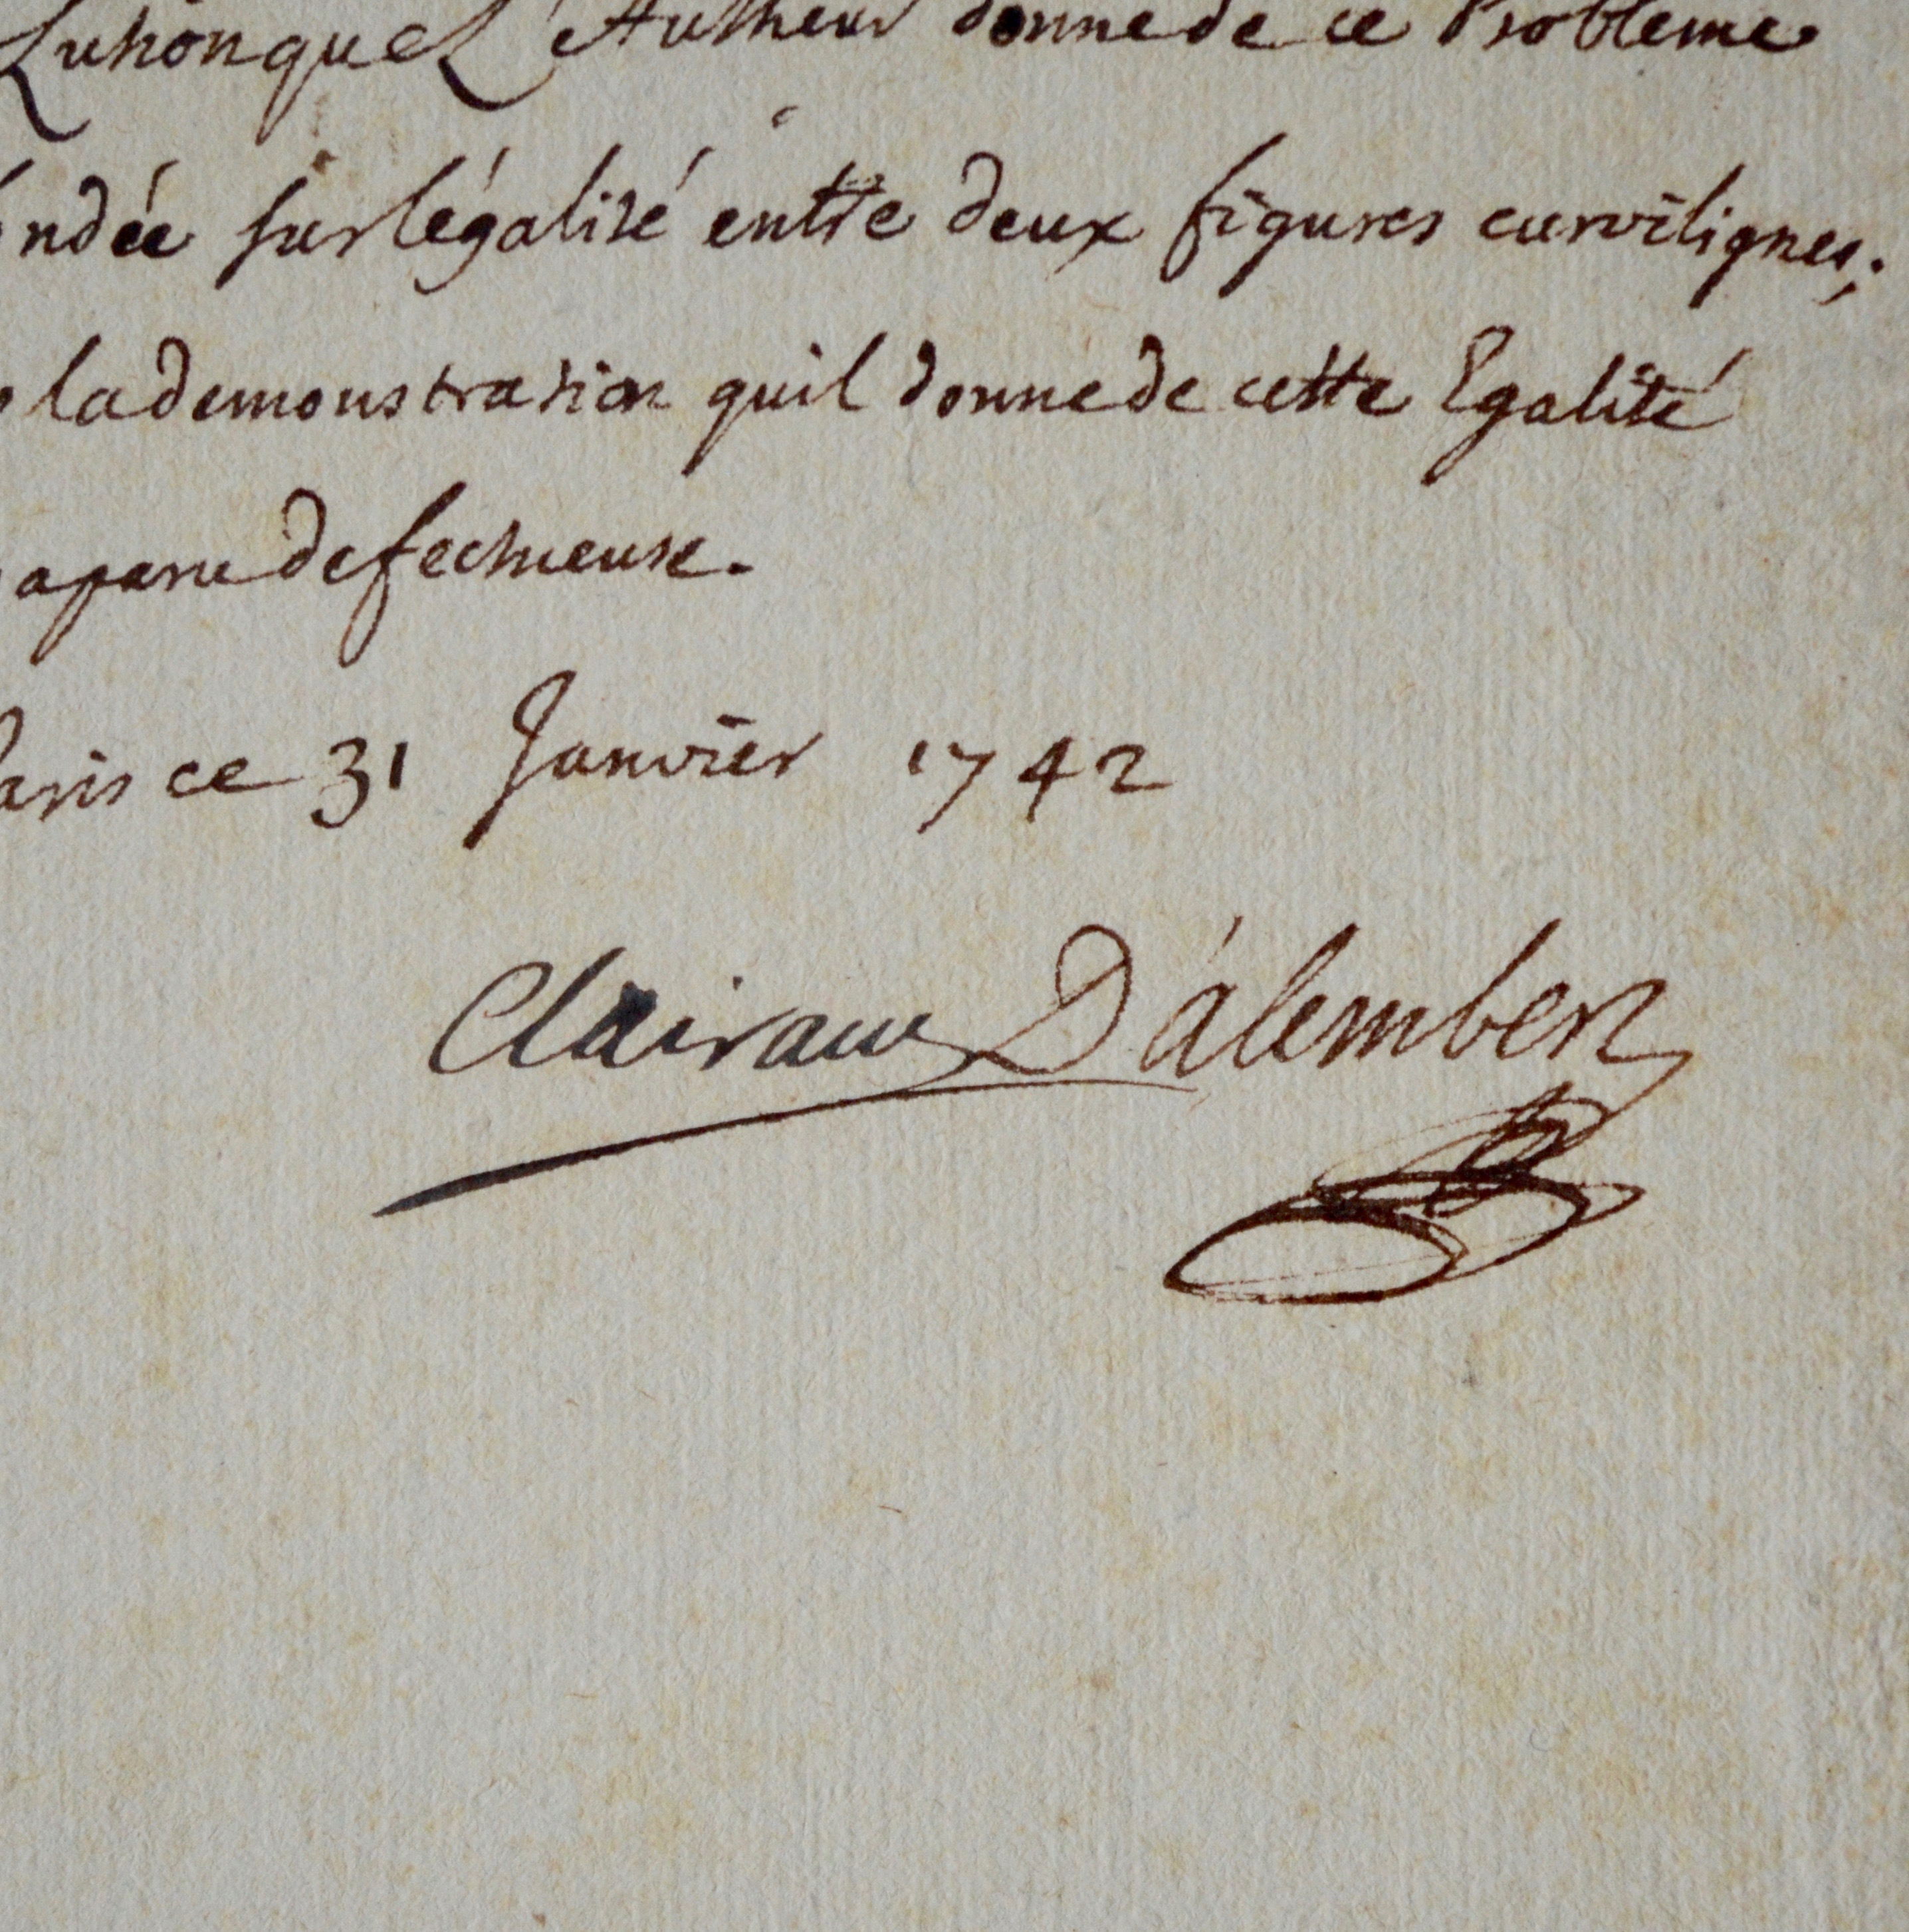 Lution que L'Autheur donne de ce Probleme
ndée sur légalité entre deux figures curvilignes;
la demonstration quil donne de cette Egalité
a paru defectueuse.
aris ce 31 Janvier 1742
Clairaut D'alembert